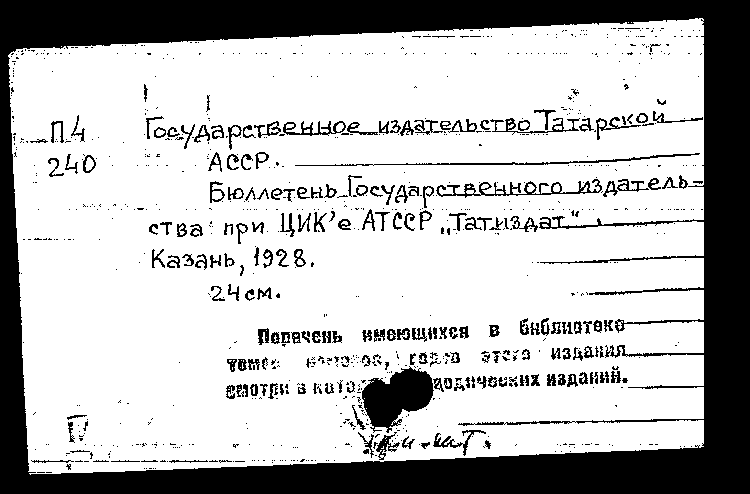 П4 Государственное издательство Татарской
240 АССР.
Бюллетень Государственного издатель-
ства при ЦИК'е АТССР „Татиздат".
Казань, 1928.
24 см.
Перечень имеющихся в библиотеке
томов номеров, годов этого издания
смотри в изданий.